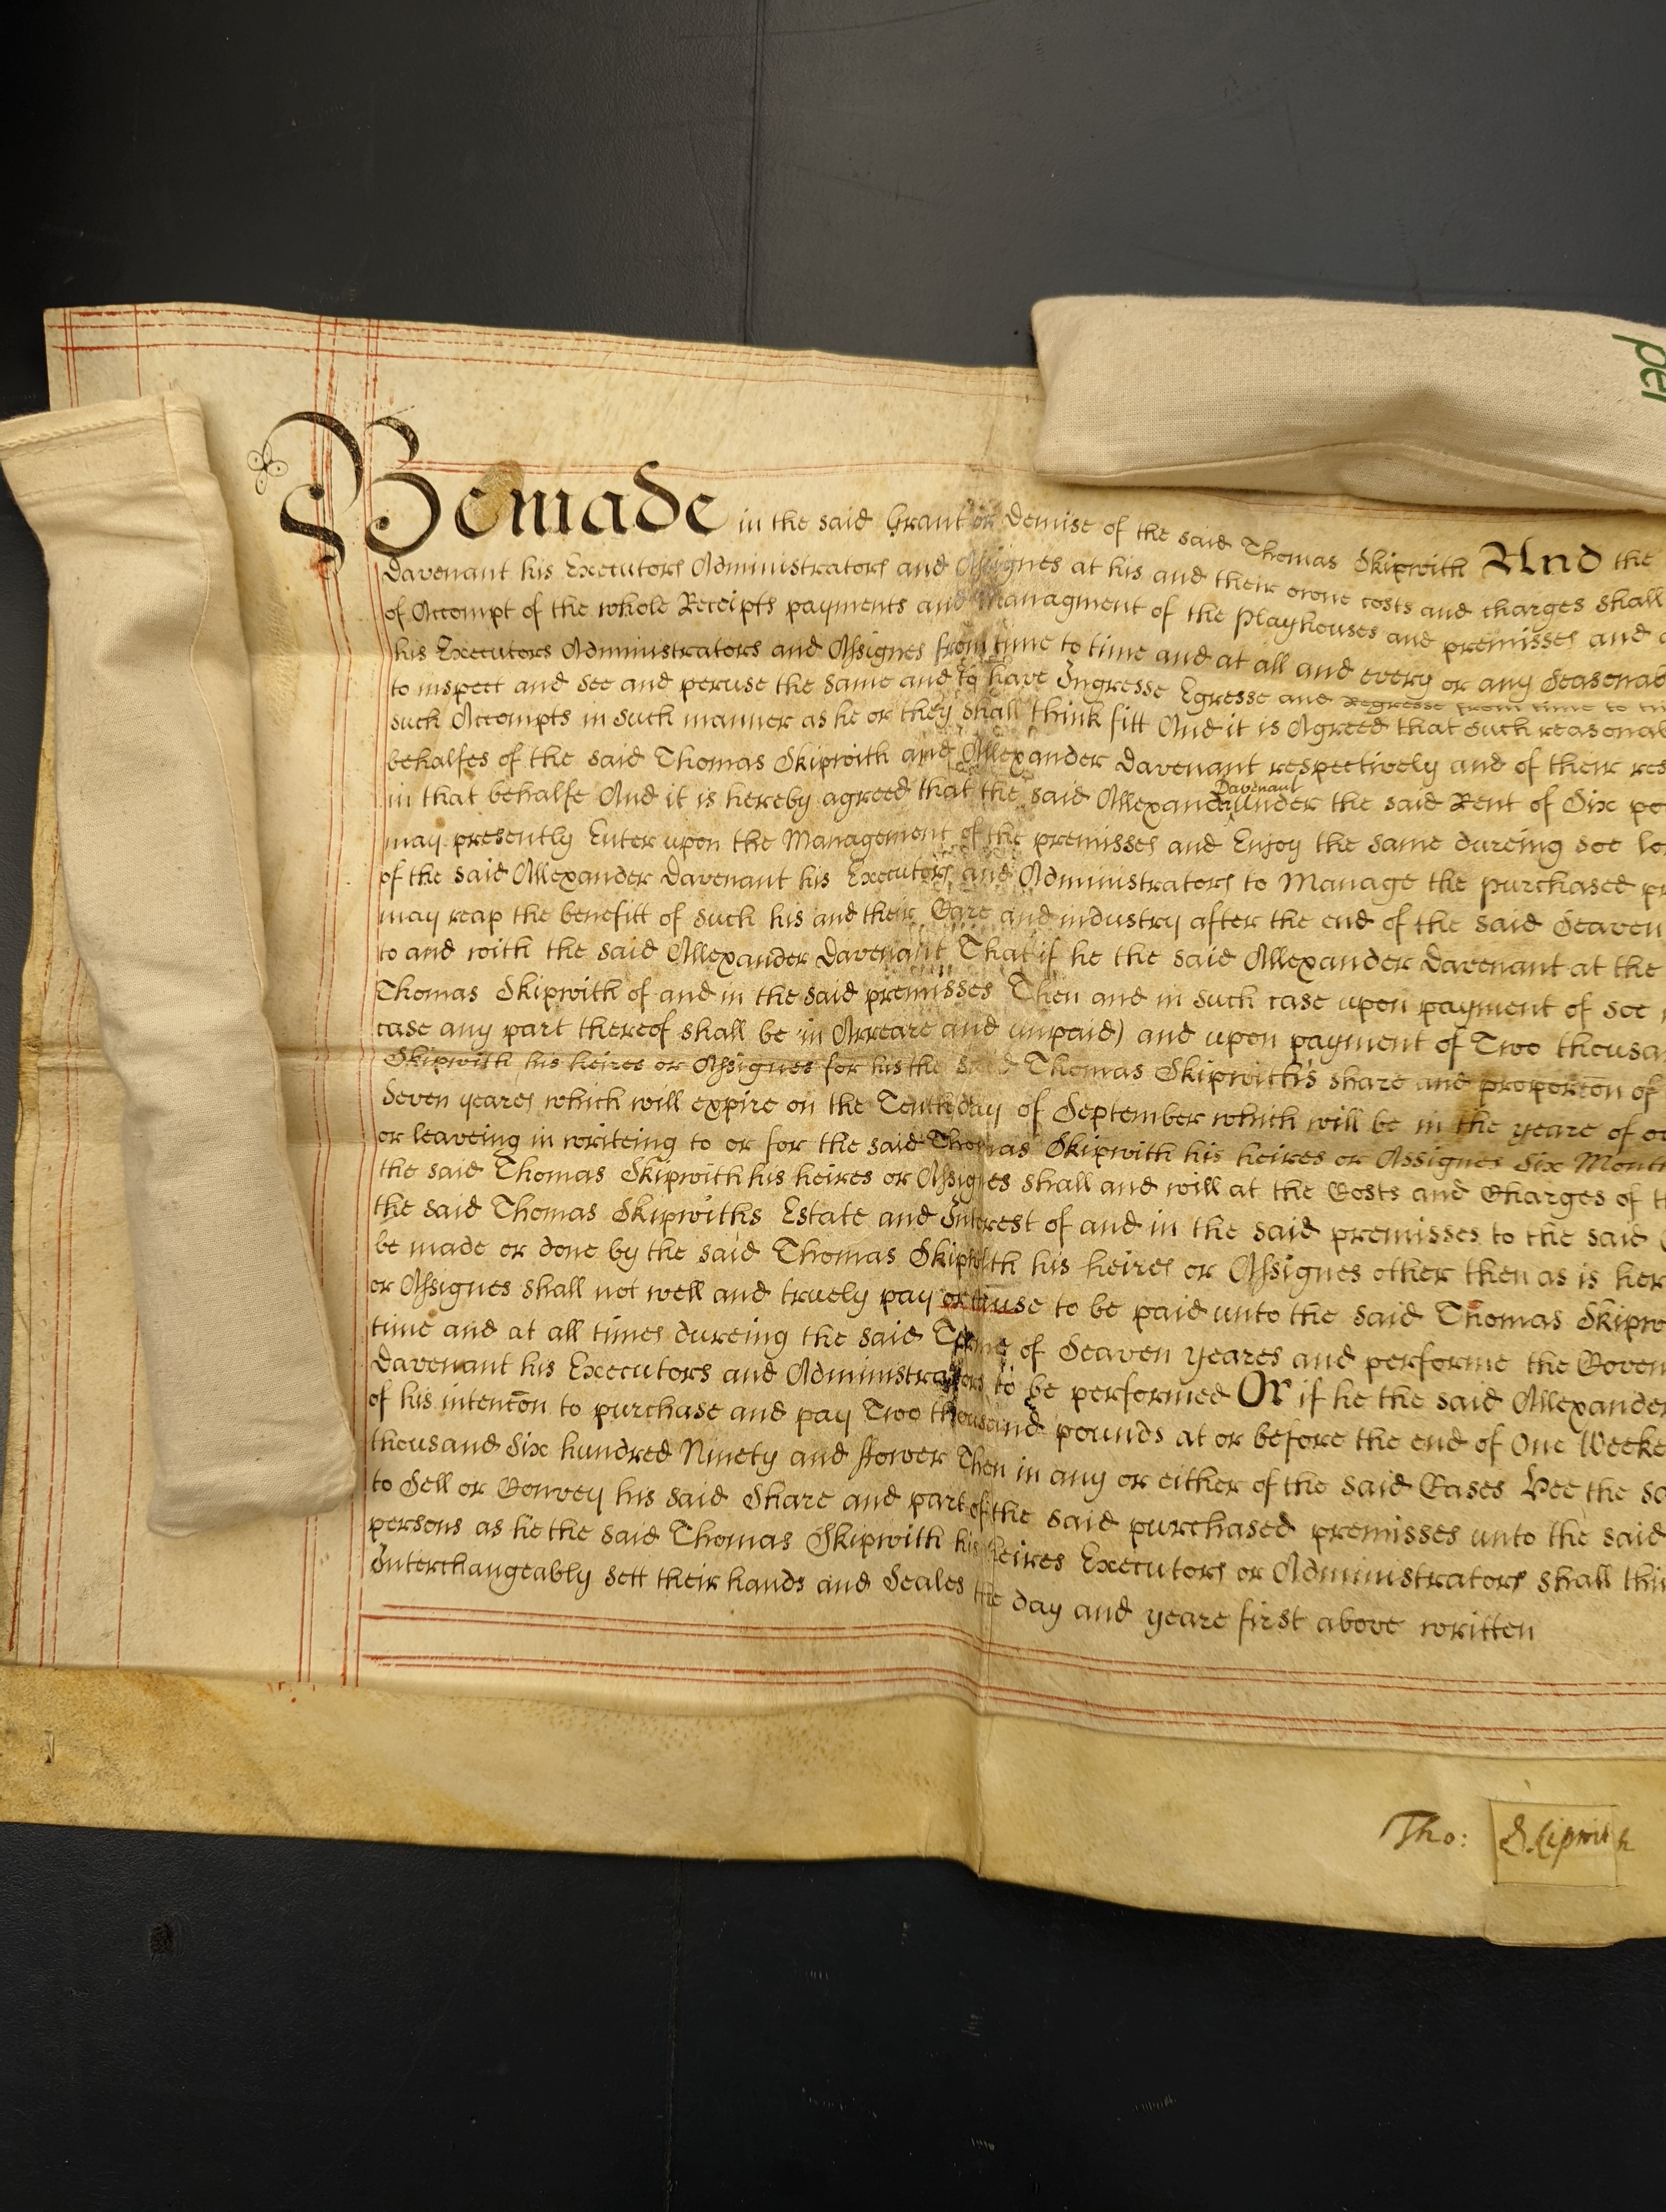 Be made in the said Grant or Demise of the said Thomas Skipwith And the
Davenant his Executors Administrators and Assignes at his and their owne costs and charges shall
of Accompt of the whole Receipts payments and Managment of the Playhouses and premisses and
his Executors Administrators and Assignes from time to time and at all and every or any Seasonab
to inspect and see and peruse the same and to have Ingresse Egresse and Regresse from time to ti
such Accompts in such manner as he or they shall think fitt And it is Agreed that such reasonab
behalfes of the said Thomas Skipwith and Allexander Davenant respectively and of their res
in that behalfe And it is hereby agreed that the said Allexander Davenant under the said Rent of Six po
may presently Enter upon the Management of the premisses and Enjoy the same dureing soe lo
of the said Allexander Davenant his Executors and Administrators to Manage the purchased pr
may reap the benefitt of such his and their Care and industry after the end of the said Seaven
to and with the said Allexander Davenant That if he the said Allexander Davenant at the
Thomas Skipwith of and in the said premisses Then and in such case upon payment of soe
case any part thereof shall be in Arreare and unpaid) and upon payment of Two thousa
Skipwith his heires or Assignes for his the said Thomas Skipwith's share and proporc̃on of
Seven yeares which will expire on the Tenth day of September which will be in the yeare of o
or leaveing in writeing to or for the said Thomas Skipwith his heires or Assignes Six Month
the said Thomas Skipwith his heires or Assignes shall and will at the Costs and Charges of t
the said Thomas Skipwiths Estate and Interest of and in the said premisses to the said
be made or done by the said Thomas Skipwith his heires or Assignes other then as is her
or Assignes shall not well and truely pay or cause to be paid unto the said Thomas Skipw
time and at all times dureing the said Terme of Seaven yeares and performe the Coven
Davenant his Executors and Administrators to be performed Or if he the said Allexander
of his intenc̃on to purchase and pay Two thousand pounds at or before the end of One Weeke
thousand Six hundred Ninety and ffower Then in any or either of the said Cases Hee the sa
to Sell or Convey his said Share and part of the said purchased premisses unto the said
persons as he the said Thomas Skipwith his heires Executors or Administrators shall thi
Interchangeably sett their hands and Seales the day and yeare first above written
Tho: Skipwith
pel